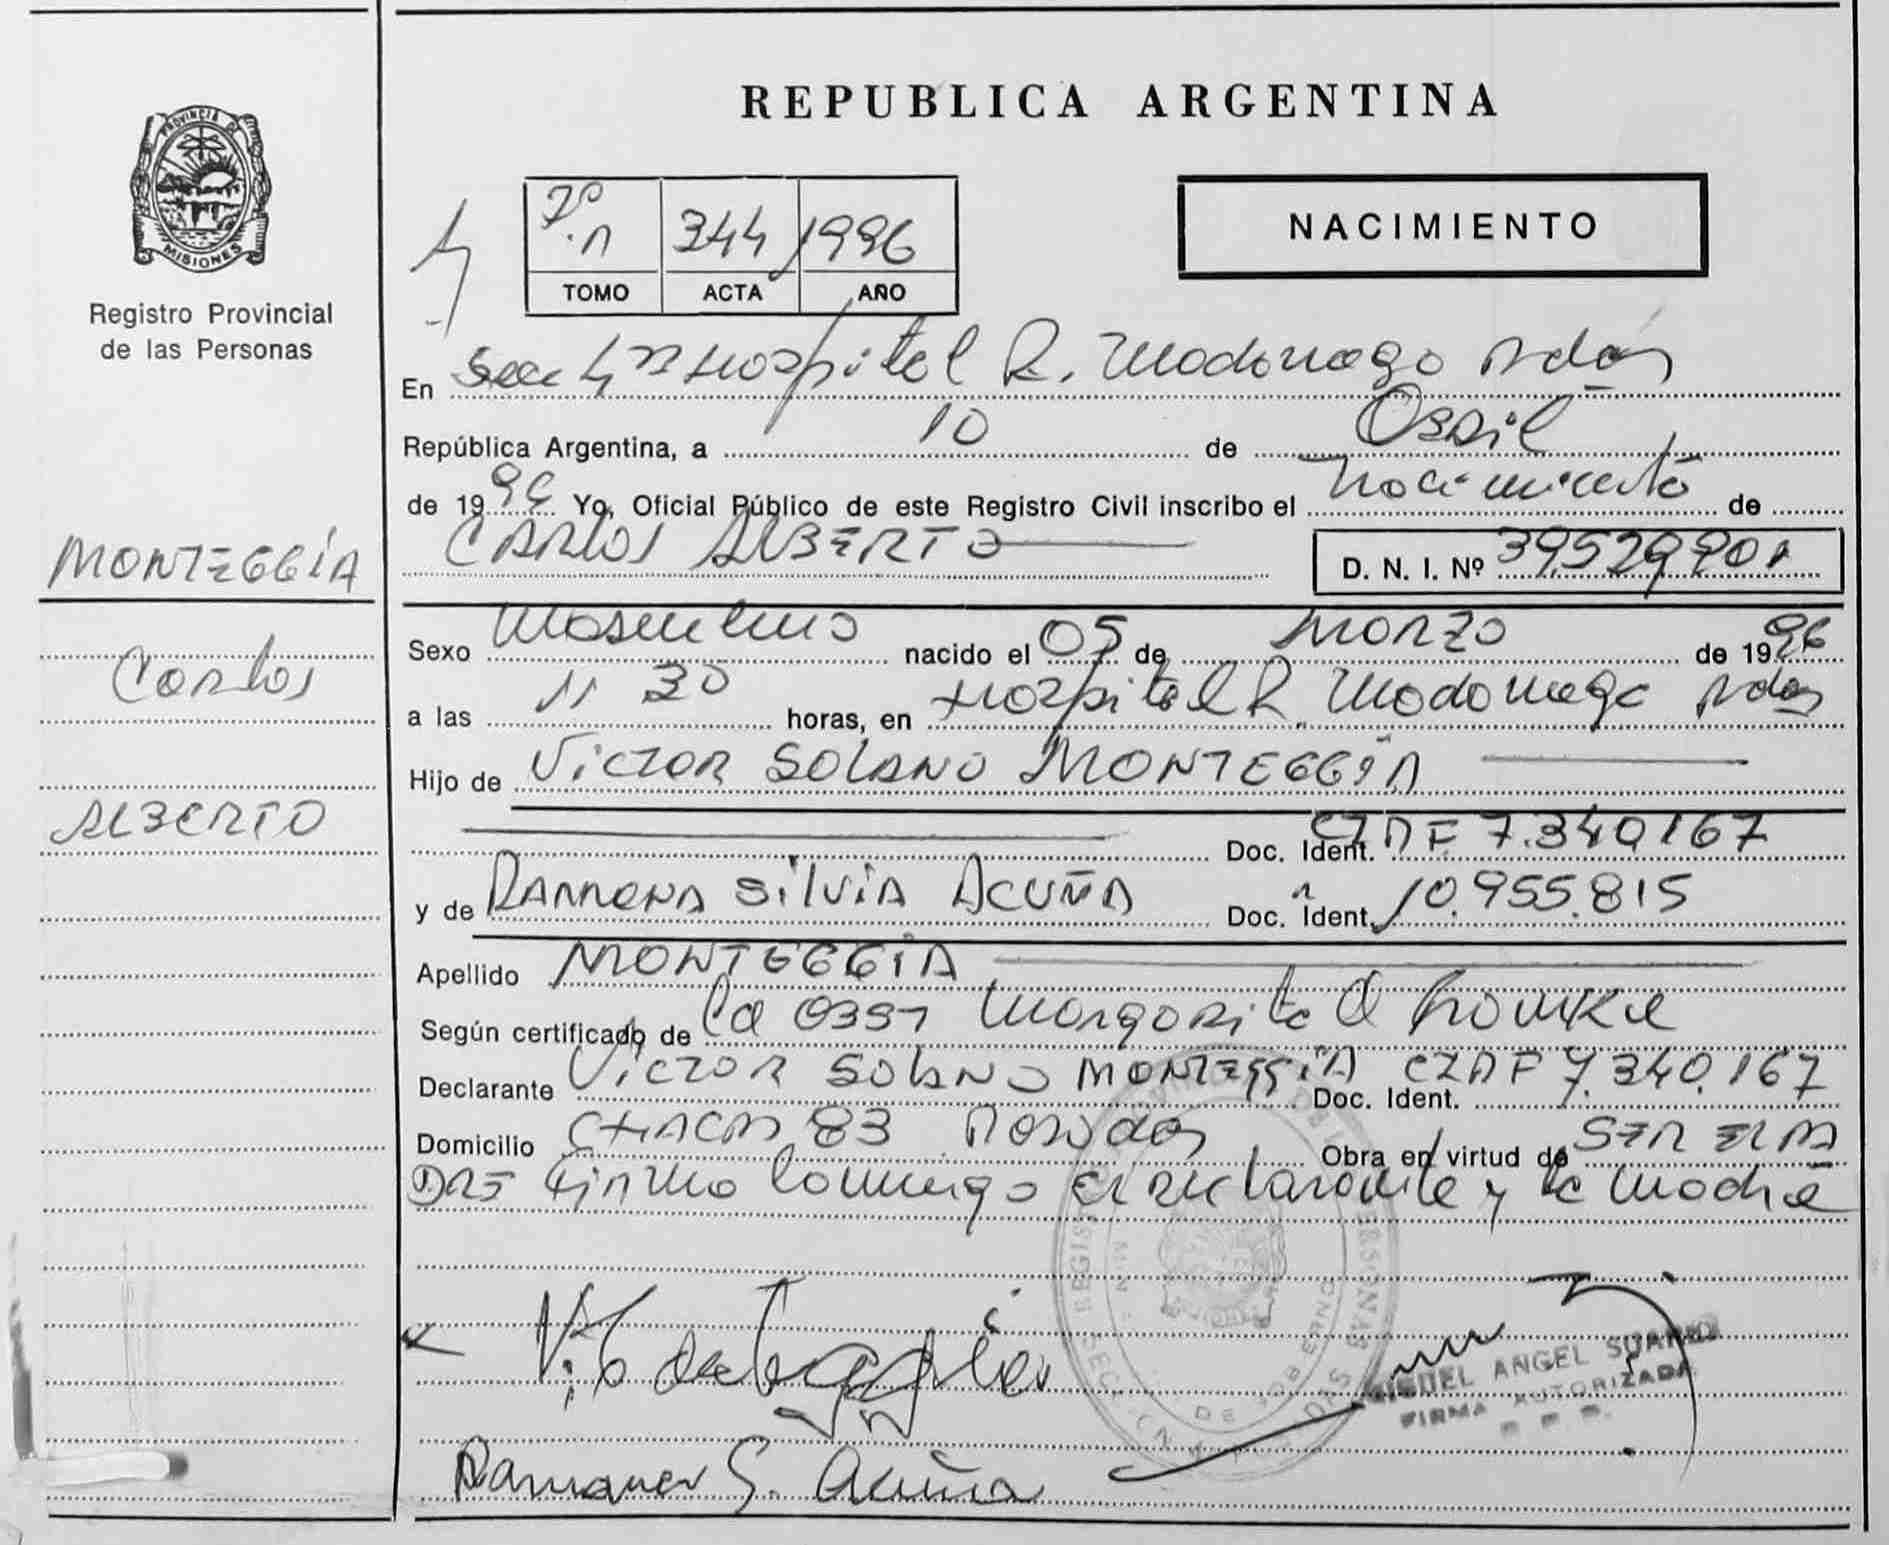 PROVINCIA DE
MISIONES
Registro Provincial
de las Personas
MONTEGGIA
Carlos
ALBERTO
REPUBLICA ARGENTINA
NACIMIENTO
344 1996
TOMO ACTA AÑO
En Secc 4 Hospital R. Madariaga Pdas
República Argentina, a 10 de Abril
de 1996 Yo, Oficial Público de este Registro Civil inscribo el Nacimiento de
CARLOS ALBERTO
D. N. I. Nº 39.529.901
Sexo Masculino nacido el 05 de Marzo de 1996
a las 11 30 horas, en Hospital R. Madariaga Pdas
Hijo de VICTOR SOLANO MONTEGGIA
Doc. Ident. 7.340.167
y de RAMONA SILVIA ACUÑA Doc. Ident. 10.955.815
Apellido MONTEGGIA
Según certificado de la Obst Margarita
Declarante VICTOR SOLANO MONTEGGIA Doc. Ident. 7.340.167
Domicilio CHACRA 83 Posadas Obra en virtud de SER EL PA
DRE firma conmigo el declarante y la madre
Ramona S. Acuña
MIGUEL ANGEL
FIRMA AUTORIZADA